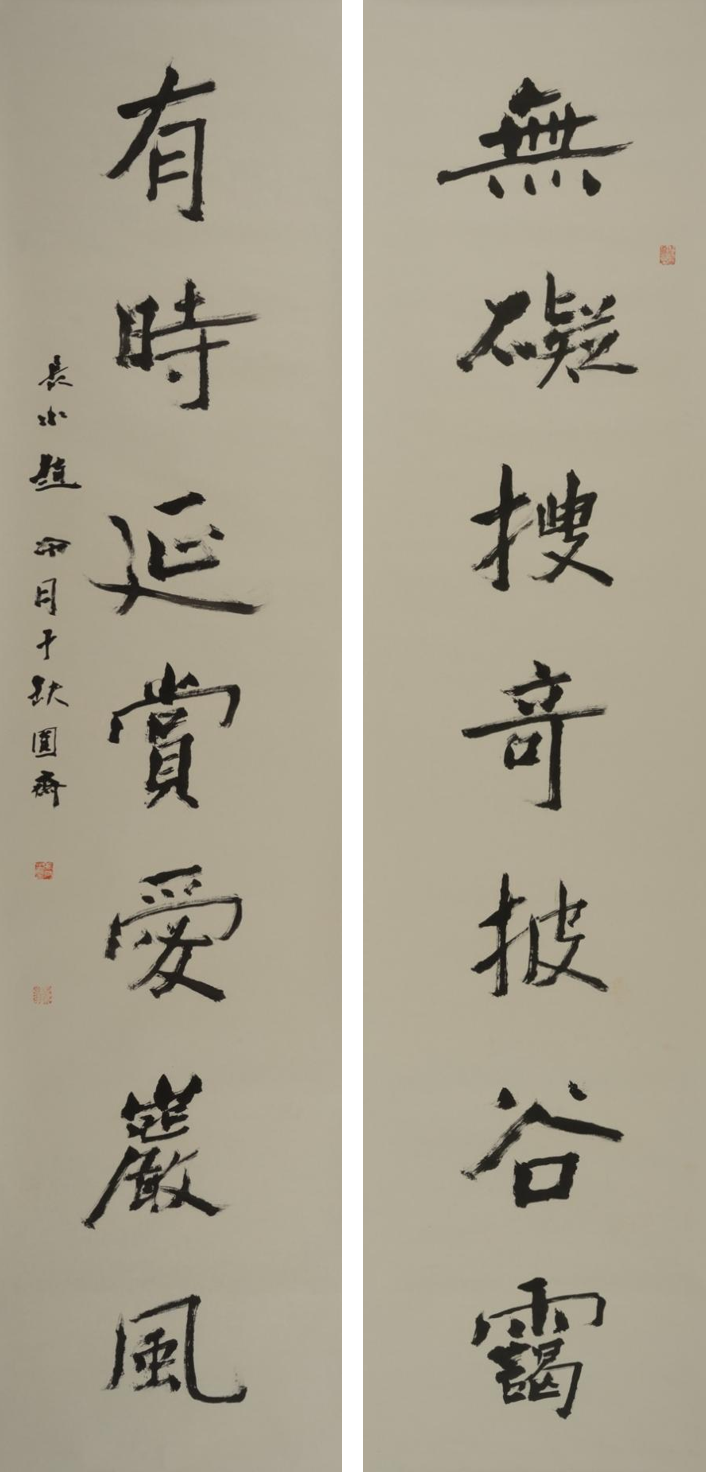 無礙搜奇披谷靄
有時延賞愛巖風
長水趙 月于缺圓齋